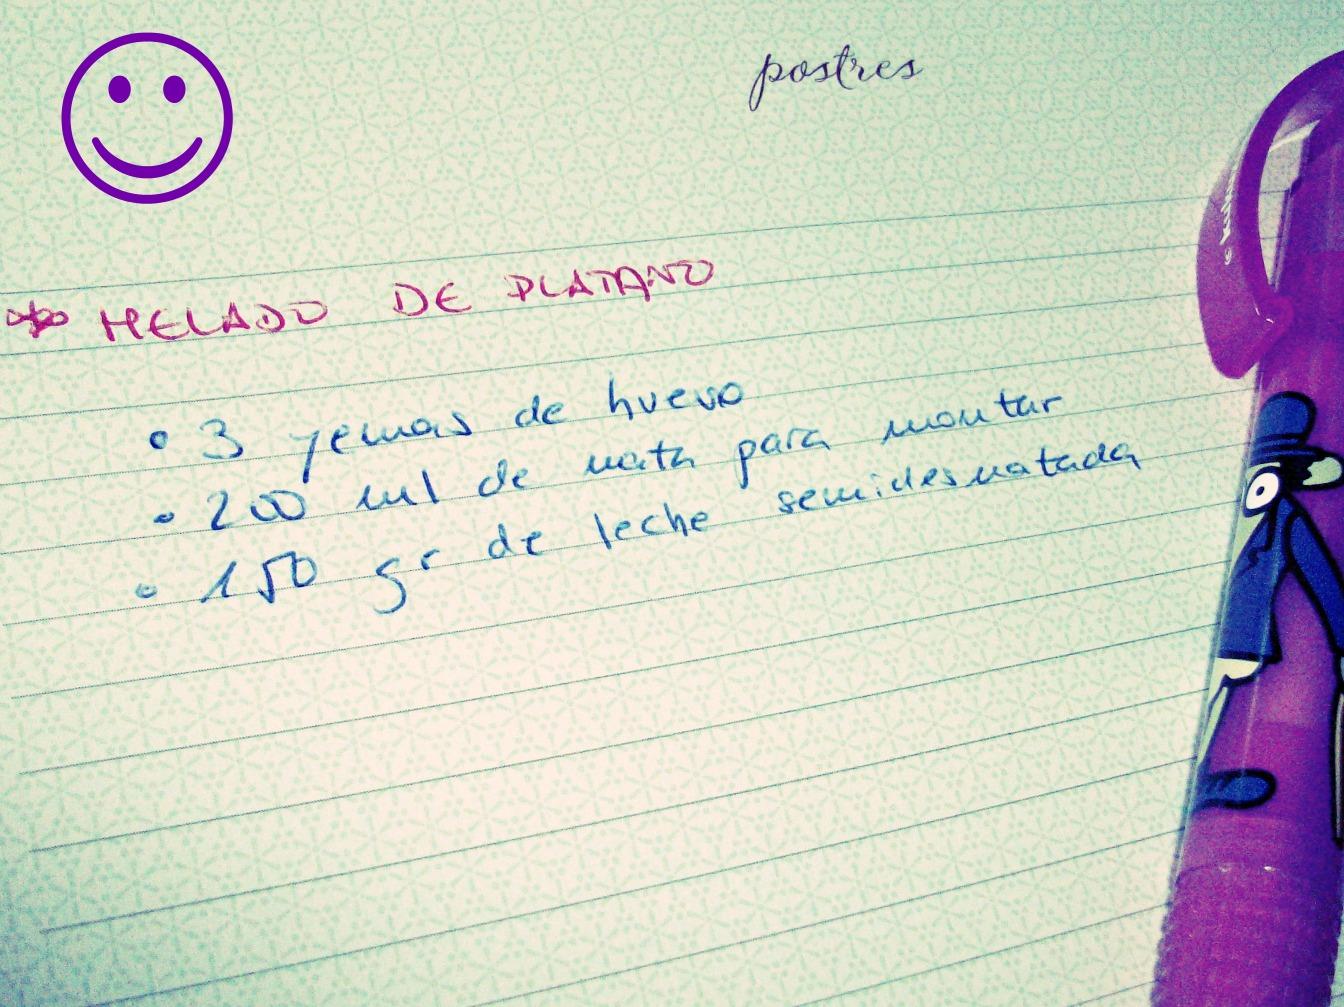 postres
HELADO DE PLATANO
• 3 yemas de huevo
• 200 ml de nata para montar
• 150 gr de leche semidesnatada